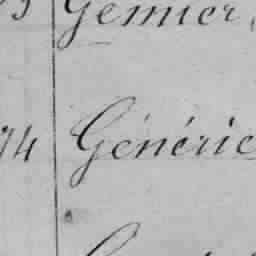 Gémier,
74 Générie